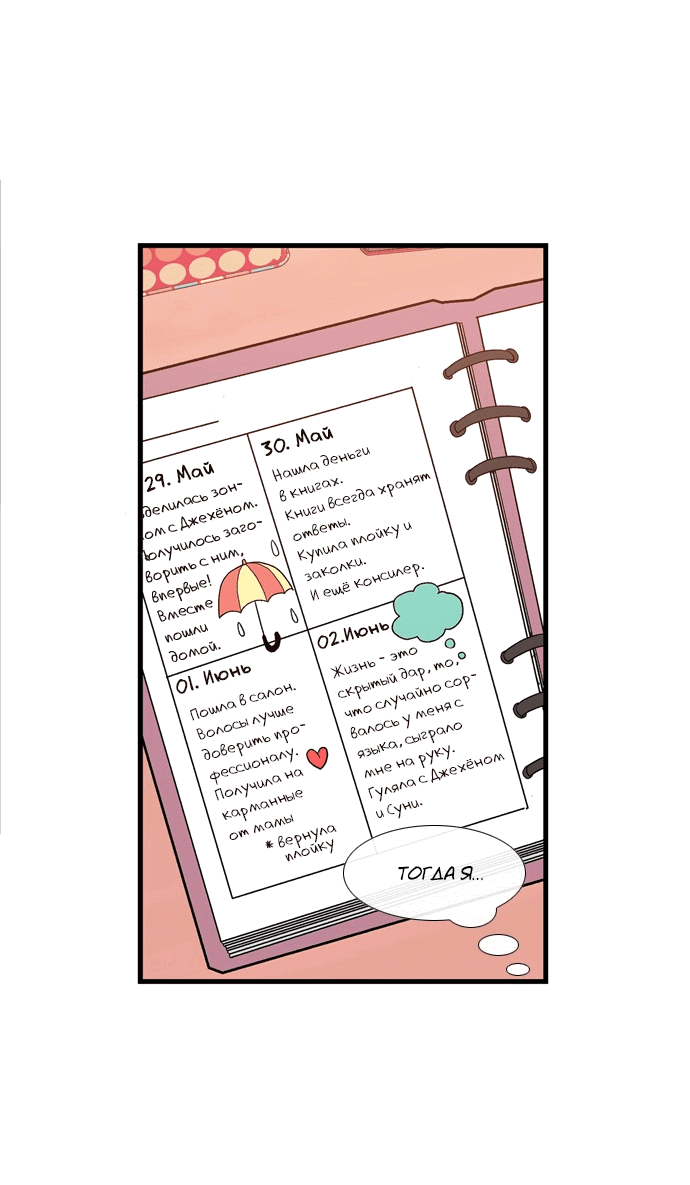 29. Май
делилась зон-
ом с Джехёном.
Получилось заго-
ворить с ним,
впервые!
Вместе
пошли
домой.
30. Май
Нашла деньги
в книгах.
Книги всегда хранят
ответы.
Купила плойку и
заколки.
И ещё консилер.
01. Июнь
Пошла в салон.
Волосы лучше
доверить про-
фессионалу.
Получила на
карманные
от мамы
* вернула
плойку
02.Июнь
Жизнь - это
скрытый дар, то,
что случайно сор-
валось у меня с
языка, сыграло
мне на руку.
Гуляла с Джехёном
и Суни.
ТОГДА Я...